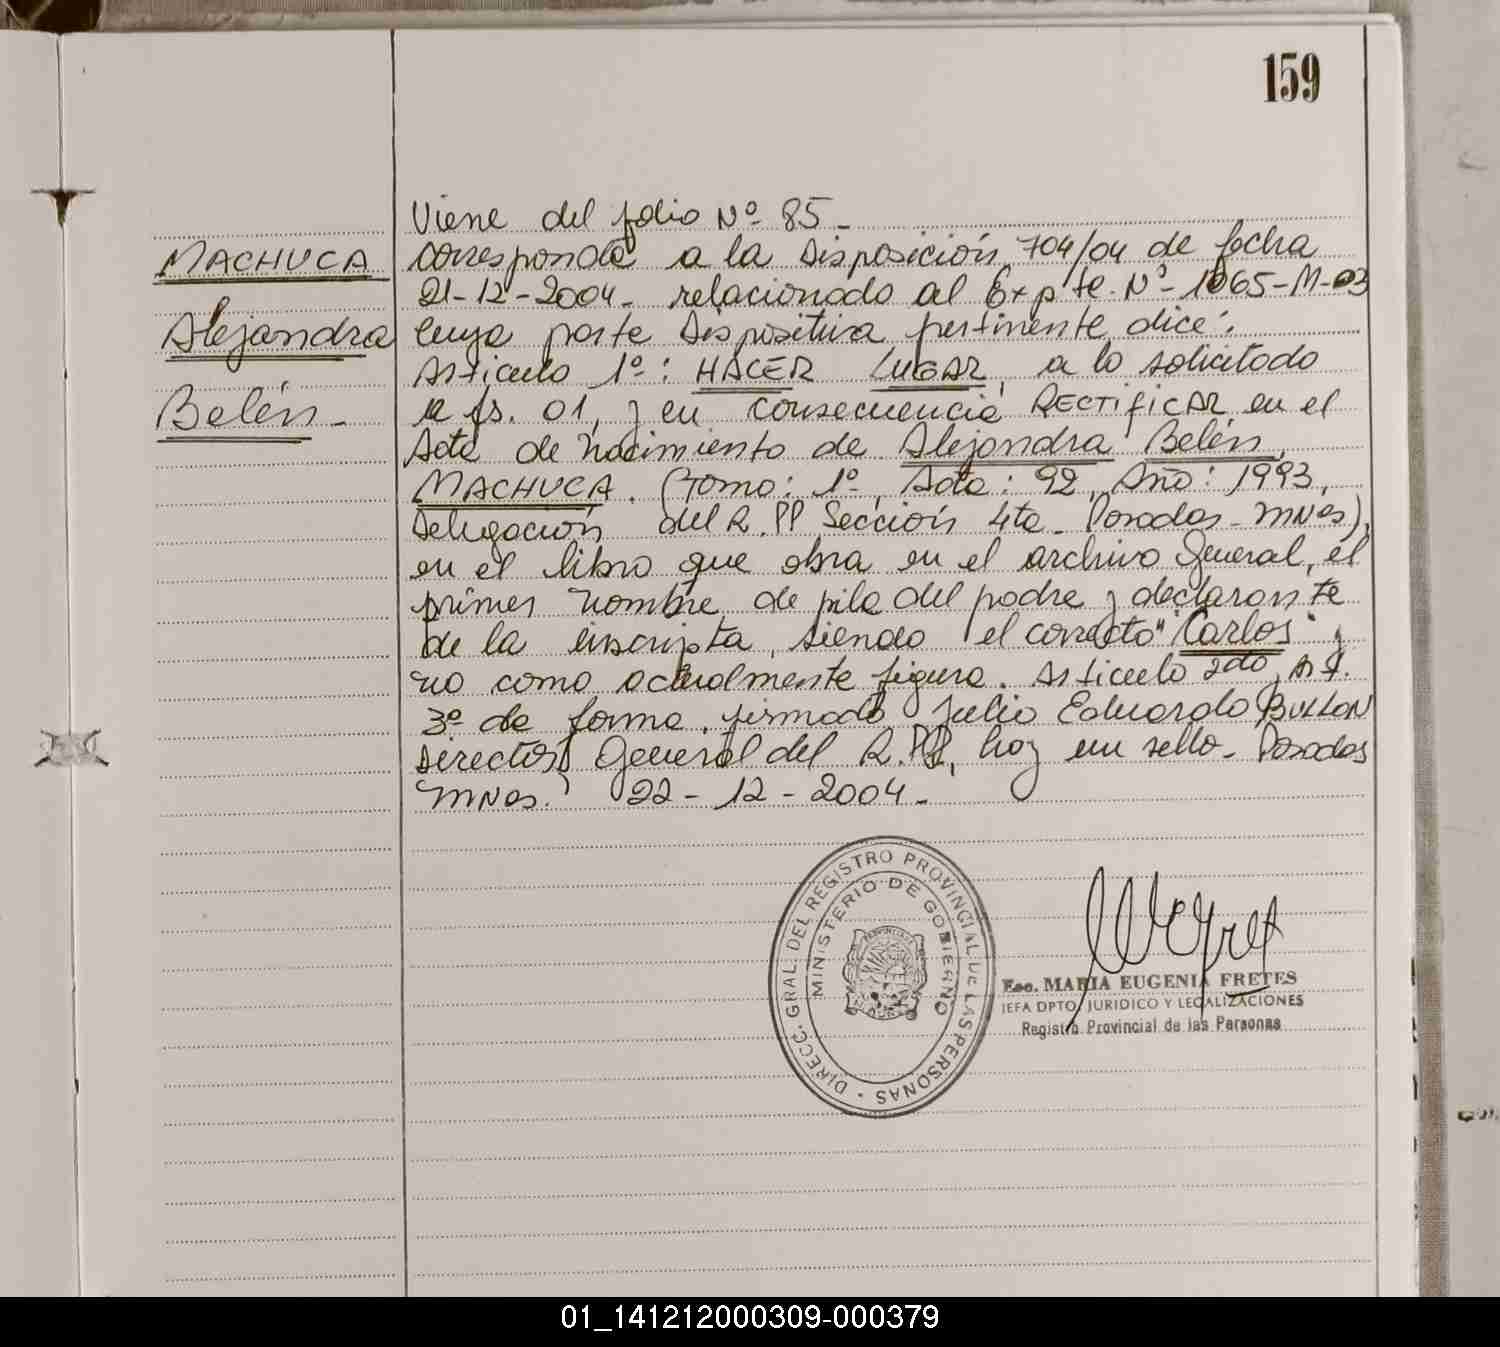 159
Viene del folio Nº 85-
MACHUCA
Alejandra
Belén-
corresponde a la Disposición 704/04 de fecha
21-12-2004- relacionado al Expte. Nº 1065-M-03
cuya parte Dispositiva pertinente dice:
Articulo 1º: HACER LUGAR, a lo solicitado
a fs. 01, y en consecuencia RECTIFICAR en el
Acta de nacimiento de Alejandra Belén
MACHUCA. (Tomo: 1º, Acta: 92, Año: 1993,
Delegación del R.PP Sección 4ta- Posadas- MNes),
en el libro que obra en el archivo General, el
primer nombre de pila del padre y declarante
de la inscripta, siendo el correcto "Carlos" y
no como actualmente figura. Articulo 2do, Art.
3º de forma. firmado Julio Eduardo
Director General del R.PP, hay un sello- Posadas
MNes. 22-12-2004-
DIRECC. GRAL. DEL REGISTRO PROVINCIAL DE LAS PERSONAS
MINISTERIO DE GOBIERNO
Esc. MARIA EUGENIA FRETES
JEFA DPTO. JURIDICO Y LEGALIZACIONES
Registro Provincial de las Personas
01_141212000309-000379